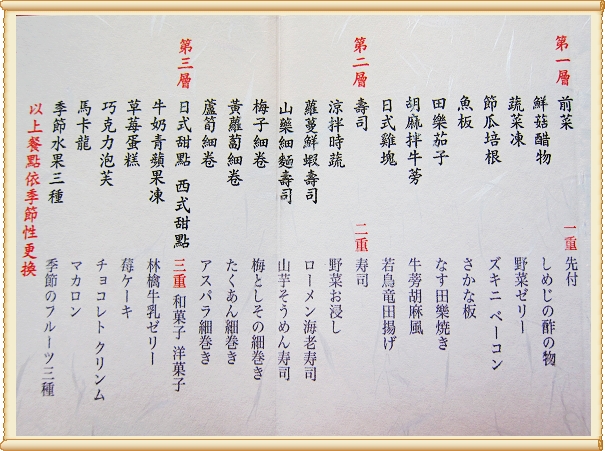 第一層 前菜 一重 先付
鮮菇醋物 しめじの酢の物
蔬菜凍 野菜ゼリー
節瓜培根 ズキニ ベーコン
魚板 さかな板
田樂茄子 なす田樂焼き
胡麻拌牛蒡 牛蒡胡麻風
日式雞塊 若鳥竜田揚げ
第二層 壽司 二重 寿司
涼拌時蔬 野菜お浸し
蘿蔓鮮蝦壽司 ローメン海老寿司
山藥細麵壽司 山芋そうめん寿司
梅子細卷 梅としその細巻き
黃蘿蔔細卷 たくあん細巻き
蘆筍細卷 アスパラ細巻き
第三層 日式甜點 西式甜點 三重 和菓子 洋菓子
牛奶青蘋果凍 林檎牛乳ゼリー
草莓蛋糕 莓ケーキ
巧克力泡芙 チョコレト クリンム
馬卡龍 マカロン
季節水果三種 季節のフルーツ三種
以上餐點依季節性更換